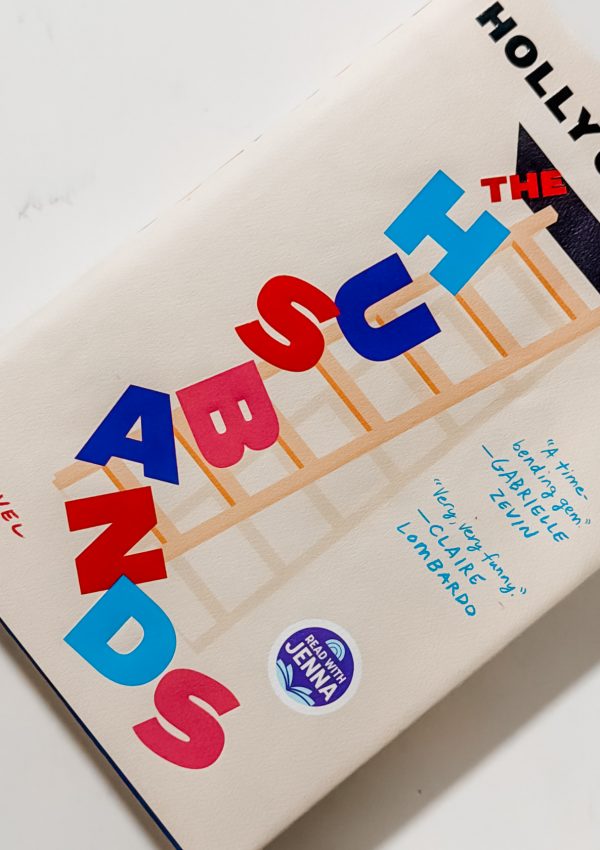 HOLLY
THE
HUSBANDS
VEL
“A time-
bending gem.”
—GABRIELLE
ZEVIN
“Very, very funny.”
—CLAIRE
LOMBARDO
READ WITH
JENNA